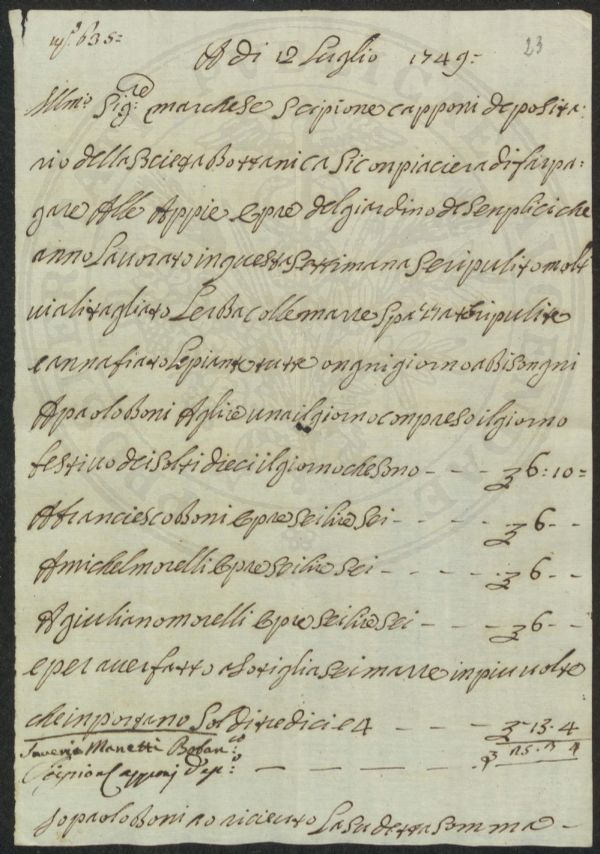 nº 635=
23
A di 12 Luglio 1749=
Illmo Sigre marchese Scipione capponi deposita=
rio della Scieta Bottanica Si conpiaciera di far pa=
gare Alle Appie Opre del giardino de Senplici che
anno Lavorato in questa Settimana Se ripulito molt
viali tagliato Lerba colle marre Spazzat ripulite
e annafiato le piante tutte ongni giorno a Bisongni
A paolo Boni A glire una il giorno conpreso il giorno
festivo dei Solti dieci il giorno che sono - - - 6:10=
A franciesco Boni Opre Sei lire Sei - - - - 6 - -
A michel morelli Opre Sei lire Sei - - - - - 6 - -
A giuliano morelli Opre Sei lire Sei - - - 6 - -
e per aver fatto asotiglia Sei marre in piu volte
che inportano Soldi tredici e 4 - - - 13.4
Saverio Manetti Botanco
Scipion Capponj Depo - - - 25.3 4
Io paolo Boni o riceuto La Su detta Somma -